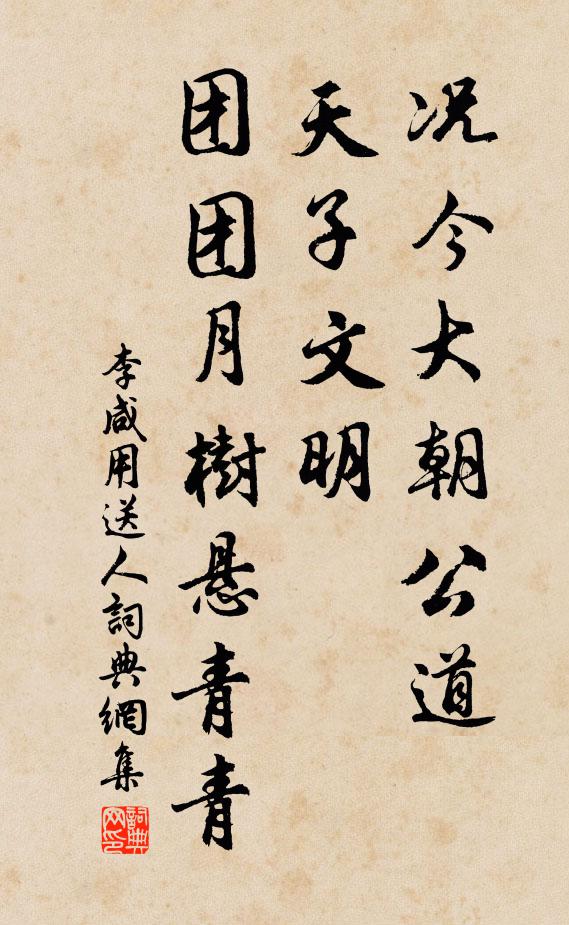 况今大朝公道
天子文明
团团月樹悬青青
李咸用送人詞典網集
詞典网印